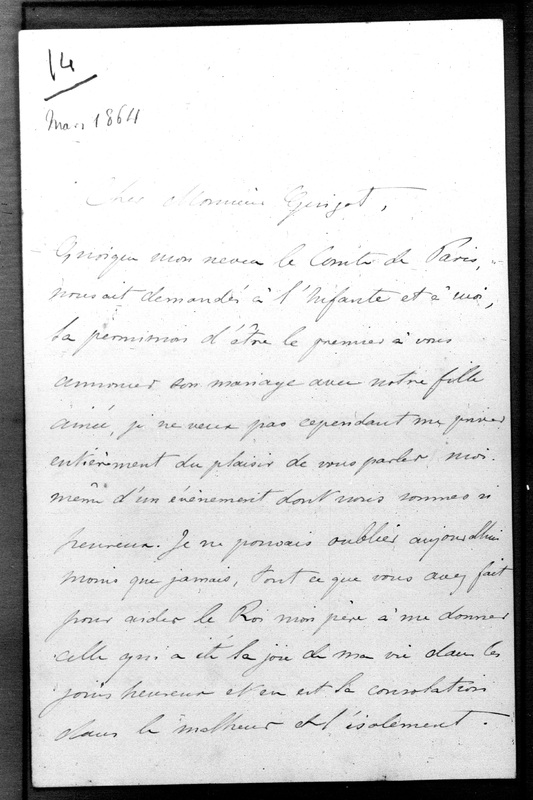 14
Mars 1864
Cher Monsieur Guizot,
Quoique mon neveu le Comte de Paris,
nous ait demandés à l'Infante et à moi,
la permission d'être le premier à vous
annoncer son mariage avec notre fille
ainée, je ne veux pas cependant me priver
entièrement du plaisir de vous parler moi
même d'un évènement dont nous sommes si
heureux. Je ne pouvais oublier aujourd'hui
moins que jamais, tout ce que vous avez fait
pour aider le Roi mon père à me donner
celle qui a été la joie de ma vie dans les
jours heureux et en est la consolation
dans le malheur et l'isolement.